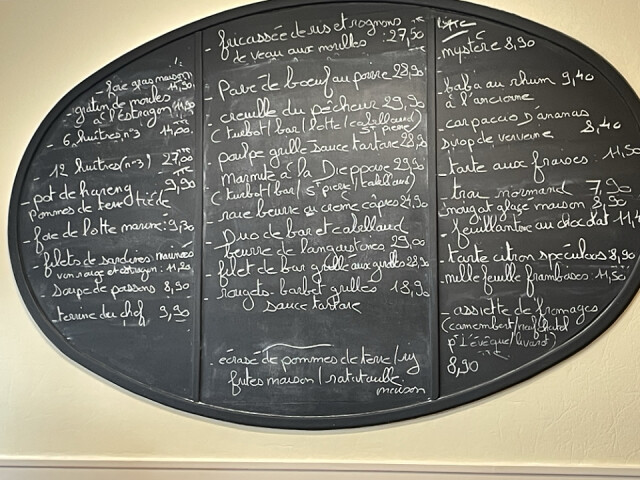 - foie gras maison
14,90
- gratin de moules
à l'estragon 11,90
- 6 huîtres n°3 14,00
12 huîtres (n°3) 27,00
- pot de hareng 9,90
pommes de terre tiède
- foie de lotte marine: 9,90
- filets de sardines marinés
vin rouge et estragon: 11,20
- soupe de poissons 8,90
- terrine du chef 9,90
- fricassée de ris et rognons
de veau aux morilles 27,50
- pavé de boeuf au poivre 28,90
- creuille du pêcheur 29,90
(turbot/bar/lotte/cabillaud
St pierre)
- poulpe grillé sauce tartare 28,90
- marmite à la Dieppoise 29,90
(turbot/bar/St pierre/cabillaud)
- raie beurre ou crème câpres 24,90
- Duo de bar et cabillaud
beurre de langoustines 29,00
- filet de bar grillé aux 28,90
- rougets-barbet grillés 18,90
sauce tartare
- écrasé de pommes de terre/riz
frites maison/ratatouille
maison
- mystère 8,90
- baba au rhum 9,40
à l'ancienne
- carpaccio d'ananas
sirop de verveine 8,40
- tarte aux fraises: 11,50
- trou normand 7,90
- nougat glacé maison 8,90
- feuillantine au chocolat 11,40
- tarte citron spéculoos 8,90
- mille feuille framboises: 11,50
- assiette de fromages
(camembert/neufchatel
pt l'évêque/livarot)
8,90